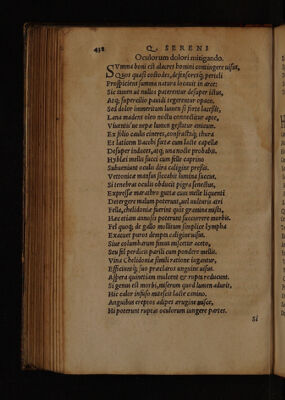 432 Q. SERENI
Oculorum dolori mitigando.
SVmma boni est alacres homini contingere visus,
Quos quasi custodes, defensoresq; pericli
Prospiciens summa natura locauit in arce:
Sic tamen ut nullos paterentur desuper ictus,
Atq; supercilio pauidi tegerentur opaco.
Sed dolor immeritum lumen si forte lacessit,
Lana madens oleo noctu connectitur apte,
Viuentis ne nepæ lumen gestatur amicum.
Ex folio caulis cineres, confractáq; thura
Et laticem Bacchi fœtæ cum lacte capellæ
Desuper induces, atq; una nocte probabis.
Hyblæi mellis succi cum felle caprino
Subueniunt oculis dira caligine pressis.
Vettonicæ mansus siccabit lumina succus.
Si tenebras oculis obducit pigra senectus,
Expressæ marathro guttæ cum melle liquenti
Detergere malum poterunt, uel uulturis atri
Fella, chelidoniæ fuerint quis gramina mista.
Hæc etiam annosis poterunt succurrere morbis.
Fel quoq; de gallo mollitum simplice lympha
Exacuet puros dempta caligine uisus.
Siue columbarum fimus miscetur aceto,
Seu fel perdicis parili cum pondere mellis.
Vina Chelidoniæ simili ratione iugantur,
Efficiuntq; suo præclaros unguine uisus.
Aspera quinetiam mulcent & rupta reducunt.
Si genus est morbi, miserum quod lumen adurit,
Hic calor infuso mitescit lacte canino.
Anguibus ereptos adipes ærugine misce,
Hi poterunt ruptas oculorum iungere partes.
Si